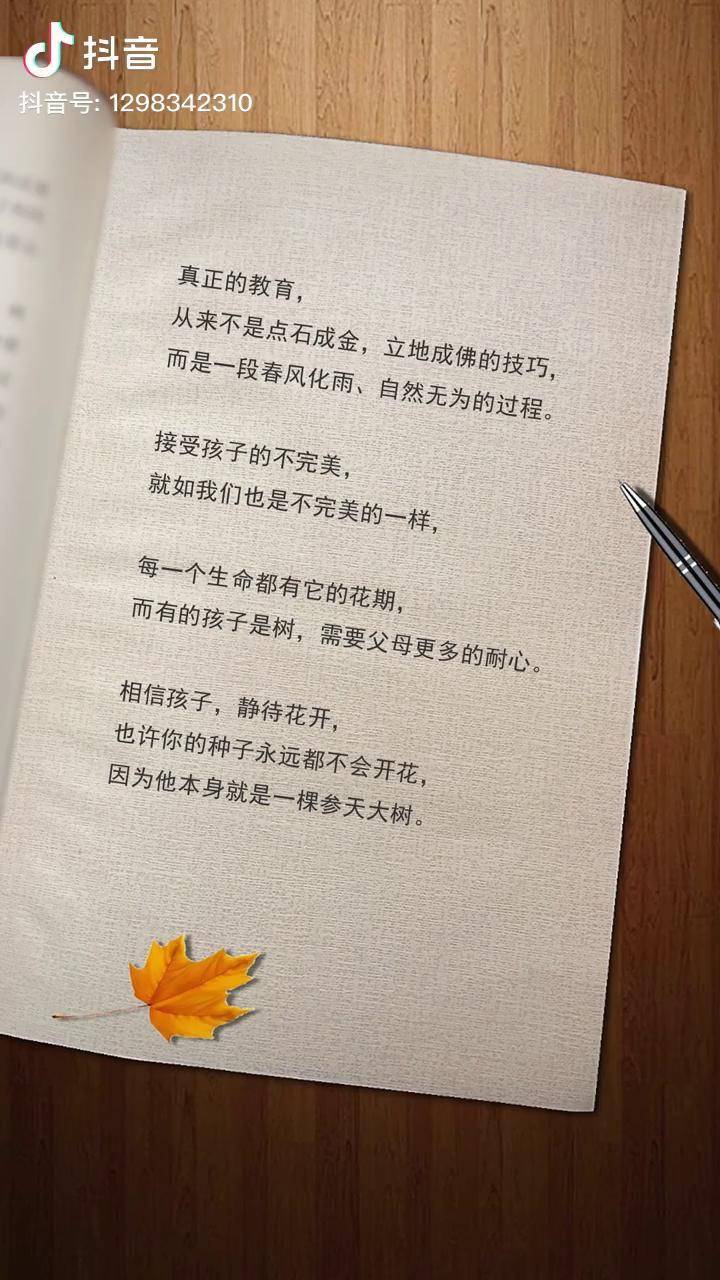 抖音
抖音号: 1298342310
真正的教育，
从来不是点石成金，立地成佛的技巧，
而是一段春风化雨、自然无为的过程。
接受孩子的不完美，
就如我们也是不完美的一样，
每一个生命都有它的花期，
而有的孩子是树，需要父母更多的耐心。
相信孩子，静待花开，
也许你的种子永远都不会开花，
因为他本身就是一棵参天大树。